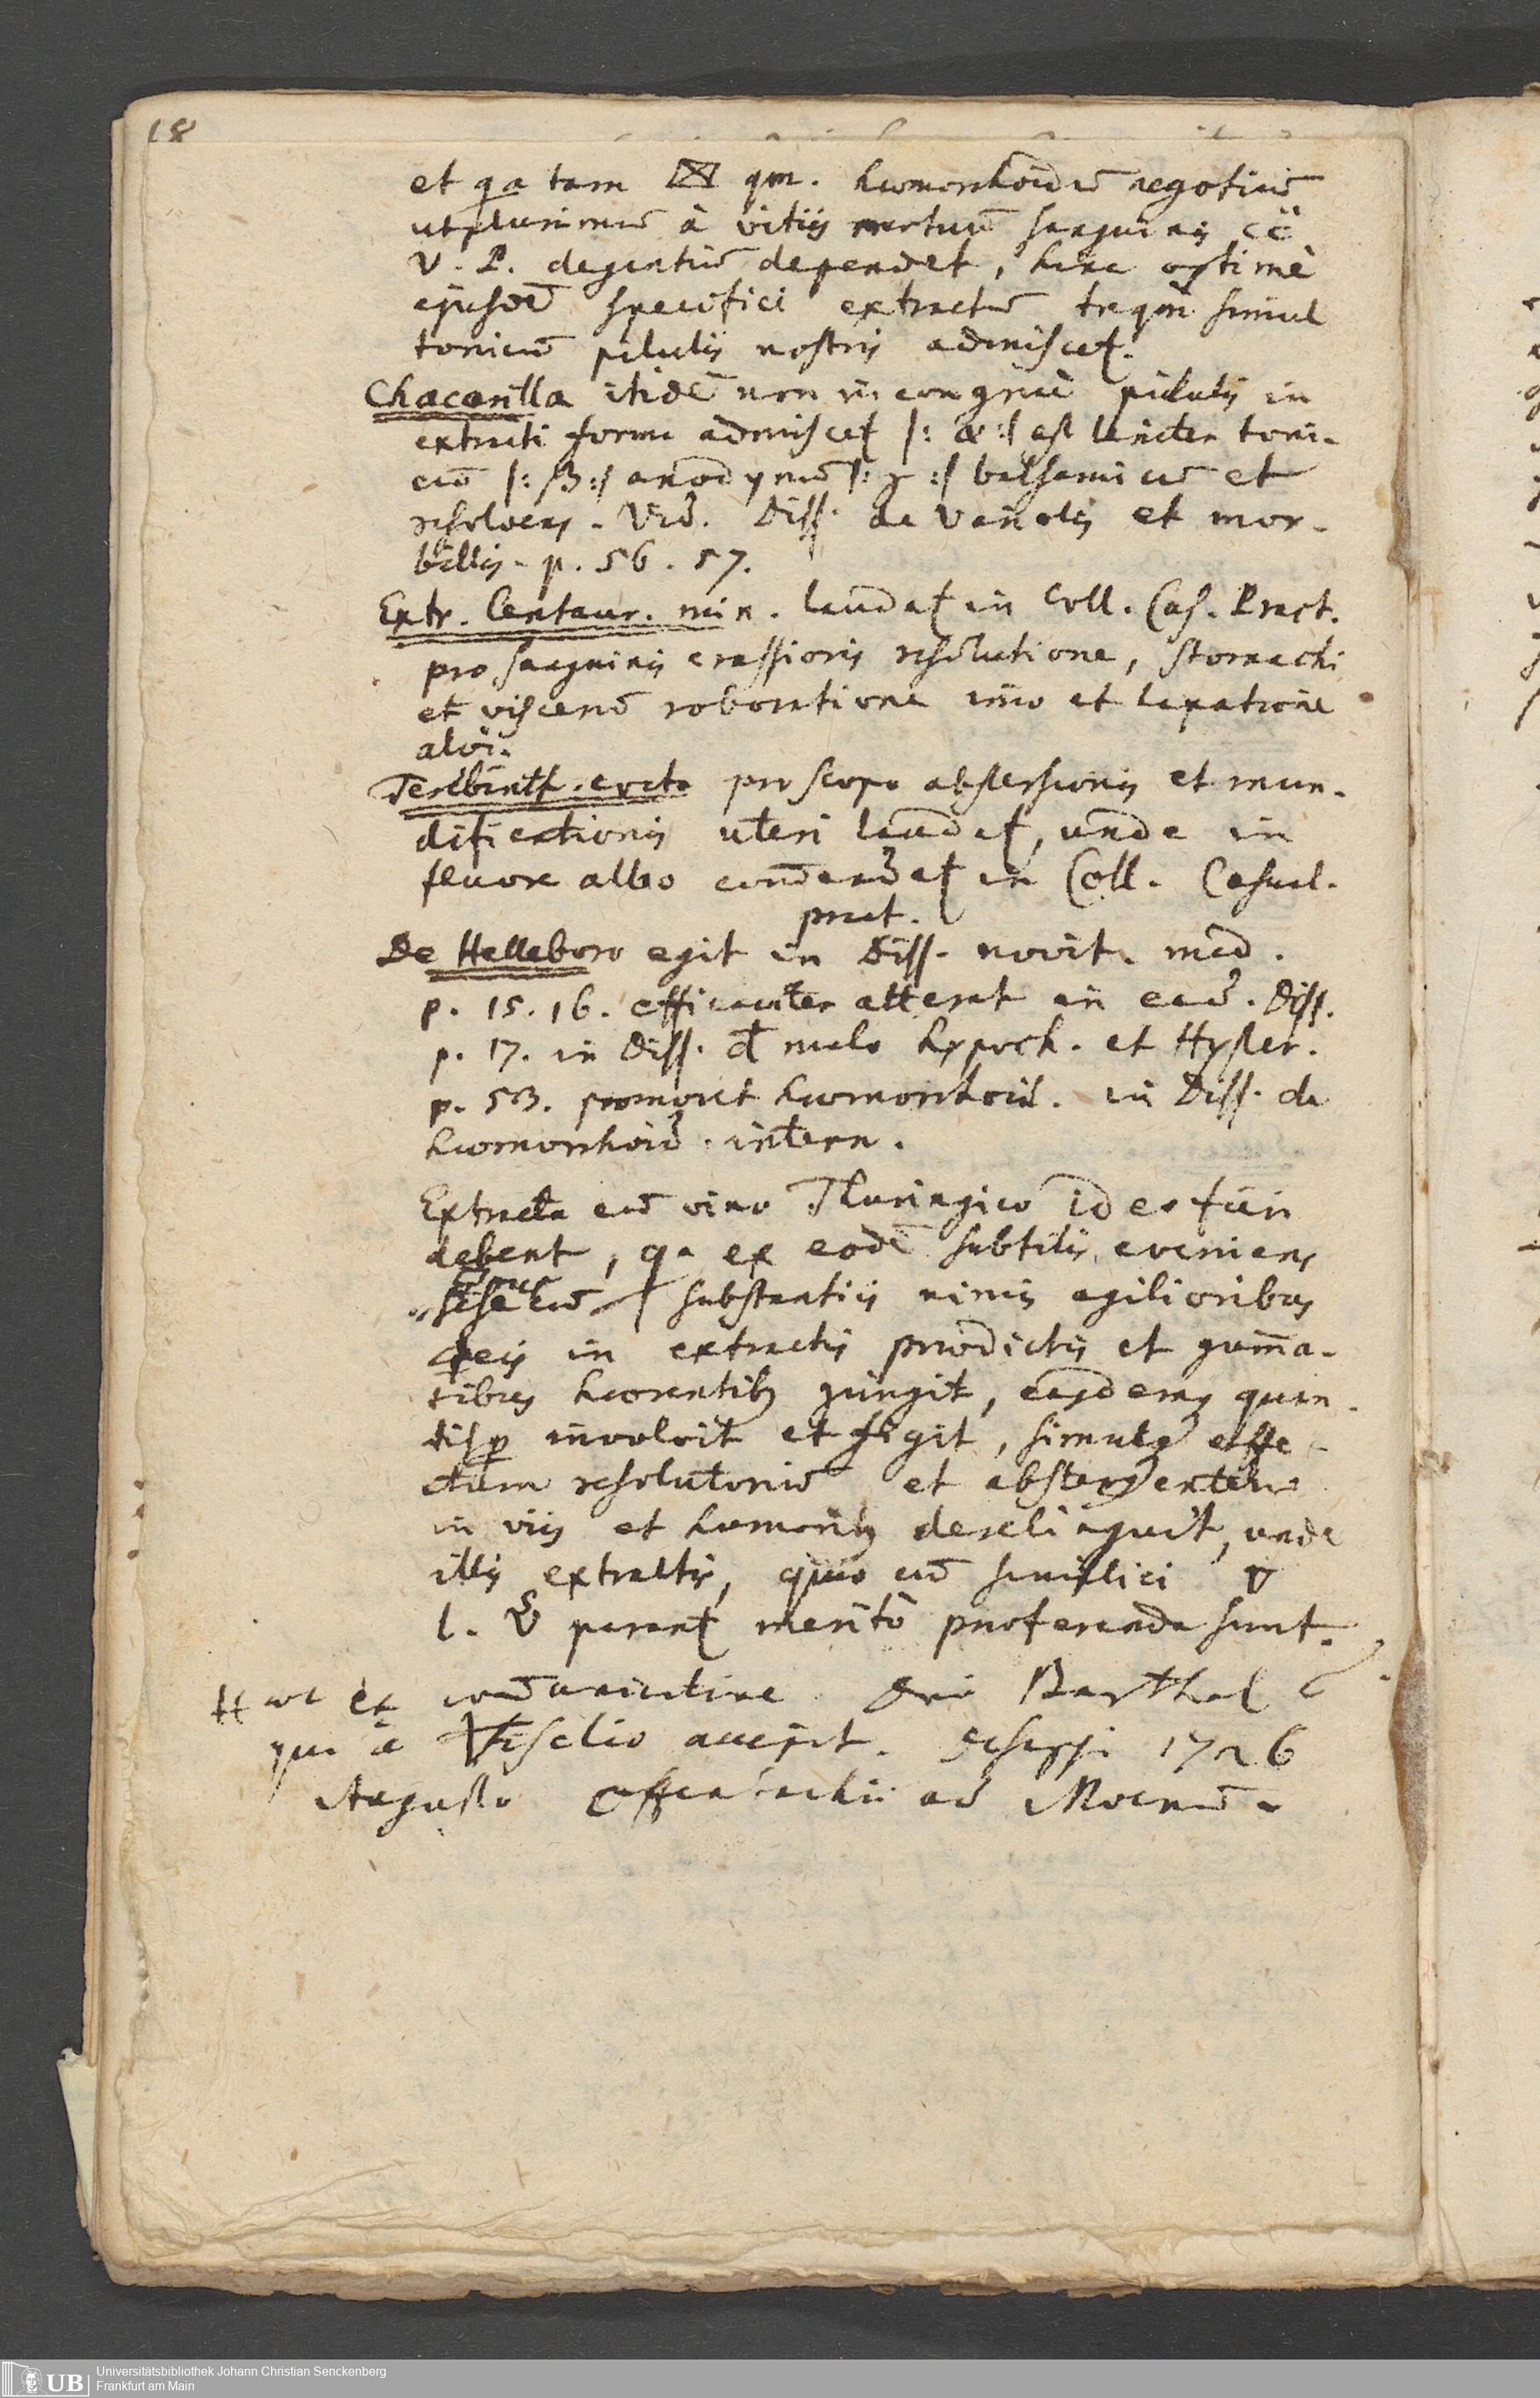 18
et qa tam qm. haemorrhoidū negotiū
utplurimū à vitiis sanguinis
V. P. degentiū dependet, hinc optimè
ejusdē specifici extractū simul
tonicū pilulis nostris admiscet.
Chacarilla itidē non incongruè pilulis in
extracti forma admiscet |: α :| est leniter toni-
cū |: β :| anodynū |: γ :| balsamicū et
resolvens. Vid. Diss. de Variolis et mor-
billis. p. 56. 57.
Extr. Centaur. min. laudat in Coll. Cas. Pract.
pro sanguinis crassioris resolutione, stomachi
et viscerū roboratione imo et laxatione
alvi.
Terebinth. cocta pro scopo abstersionis et mun-
dificationis uteri laudat, unde in
fluore albo comendat in Coll. Casual.
pract.
De Helleboro egit in Diss. novit. med.
p. 15. 16. efficaciter atterat in ead. Diss.
p. 17. in Diss. d malo hypoch. et Hyster.
p. 53. promovet haemorrhoid. in Diss. de
haemorrhoid. intern.
Extracta cū vino Thuringico ideo fieri
debent, qa ex eodē subtilis eveniens
sese cū substantiis nimis agilioribus
in extractis praedictis et gumma-
tibus haerentibus jungit, easdemq quan-
tisp involvit et figit, simulq effe-
ctum resolutoriū et abstergentem
in viis et humoribus derelinquit, unde
illis extractis, quae cū simplici ▽
l. parant meritò praeferenda sunt.
Haec ex comunicatione Dni Barthol
qui à accepit. descripsi 1726
Augusto Offenbachii ad Moenū.
Universitätsbibliothek Johann Christian Senckenberg
Frankfurt am Main
UB